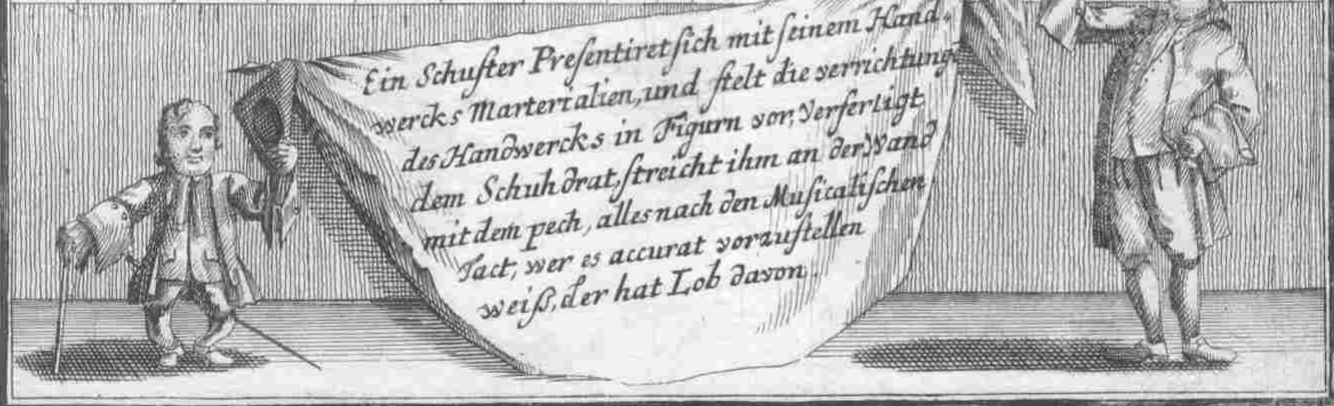 Ein Schuster Presentiret sich mit seinem Hand-
wercks Martertalien, und stelt die verrichtung
des Handwercks in Figurn vor, Verfertigt
dem Schuh drat, streicht ihm an der Wand
mit dem pech, alles nach den Musicalischen
Tact, wer es accurat vorzustellen
weiß, der hat Lob davon.